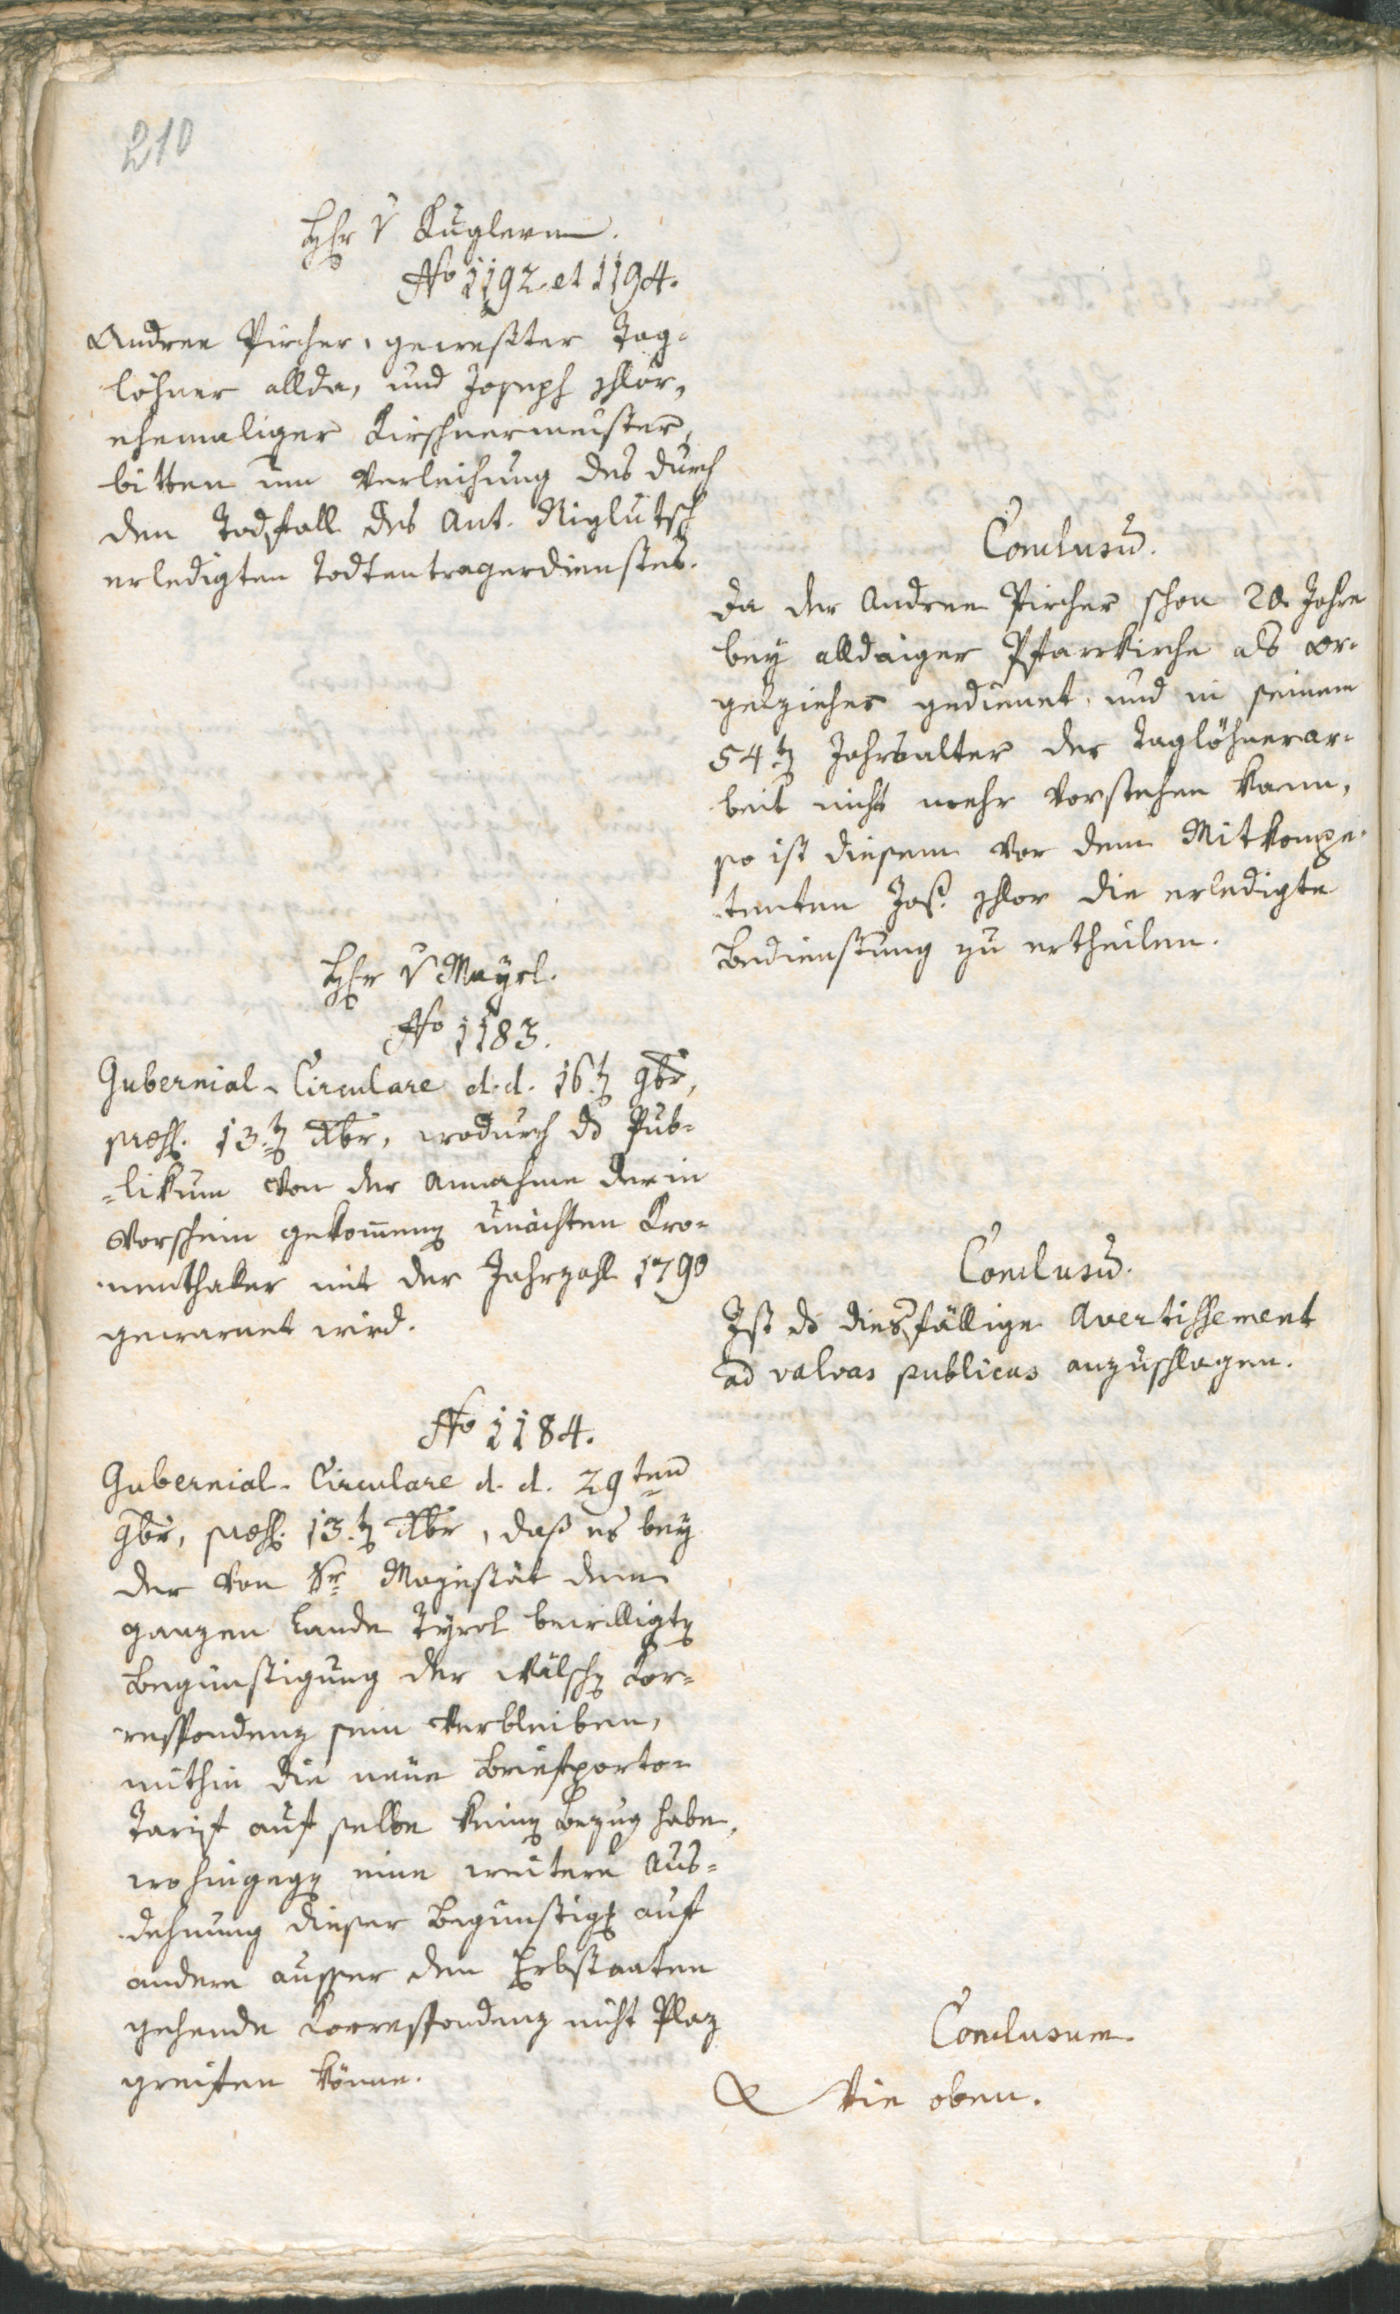 210
Hr v Kuglern.
No 1192 et 1194.
Andree Pircher, gewester Tag-
löhner allda, und Joseph
ehemaliger Kirschnermeister,
bitten um Verleihung des durch
den Todfall des Ant. Niglutsch
erledigten Todtentragerdienstes.
Conclusū.
Da der Andree Pircher schon 20 Jahre
bey alldaiger Pfarrkirche als Or-
gelzieher gedienet, und in seinem
54t Jahrsalter der Taglöhnerar-
beit nicht mehr vorstehen kann,
so ist diesem vor dem Mitkompe-
tenten Jos. die erledigte
Bedienstung zu ertheilen.
Hr v Mayrl.
No 1183.
Gubernial-Circulare d. d. 16t 9br,
praes. 13t Xbr, wodurch ds Pub-
=likum von der Annahme der in
Vorschein gekom̄en unächten Kro-
nenthaler mit der Jahrzahl 1790
gewarnet wird.
Conclusū.
Ist ds diesfällige Avertissement
ad valvas publicas anzuschlagen.
No 1184.
Gubernial-Circulare d. d. 29ten
9br, praes. 13t Xbr, daß es bey
der von Sr Majestät dem
ganzen Lande Tyrol bewilligten
Begünstigung der Wälschen Cor-
respondenz sein Verbleiben,
mithin die neue Briefporto-
Tarif auf selbe keinen Bezug habe,
wohingegen eine weitere Aus-
dehnung dieser Begünstigg auf
andere ausser den Erbstaaten
gehende Correspondenz nicht Plaz
greifen könne.
Conclusum.
Wie oben.